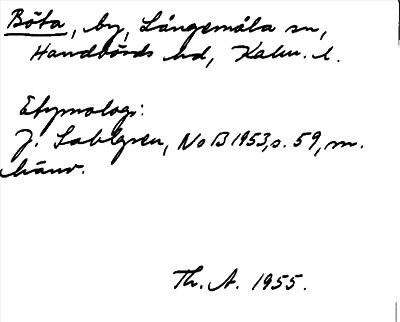 Böta, by, Långemåla sn,
Handbörds hd, Kalm. l.
Etymologi:
J. Sahlgren, NoB 1953, s. 59, m.
hänv.
Th. A. 1955.